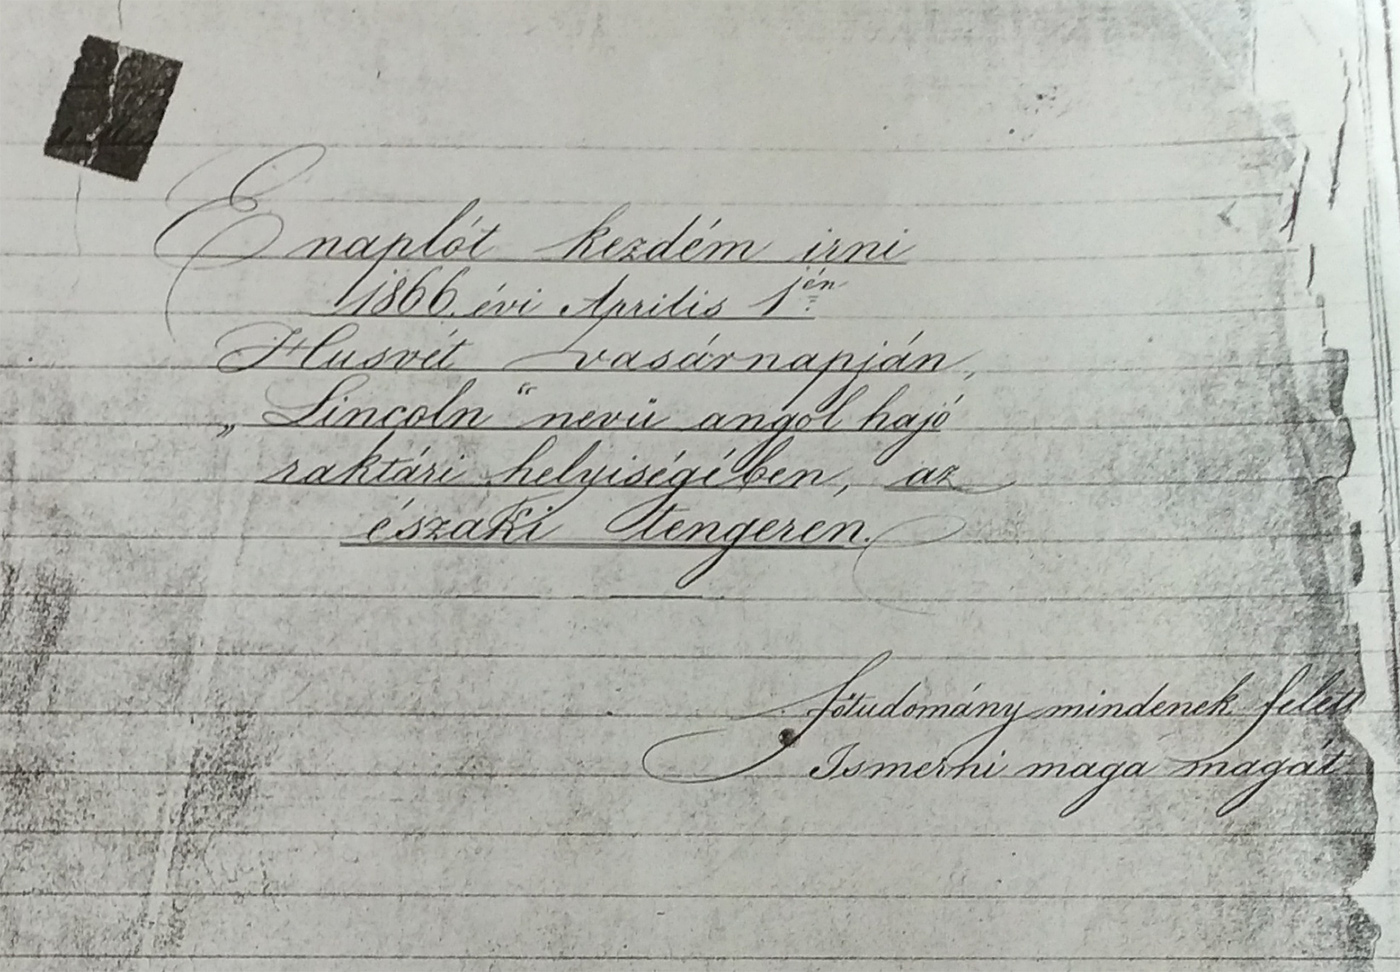 E naplót kezdém irni
1866. évi Aprilis 1 jén
Husvét vasárnapján,
„Lincoln“ nevü angol hajó
raktári helyiségében, az
északi tengeren.
főtudomány mindenek felett
Ismerni maga magát